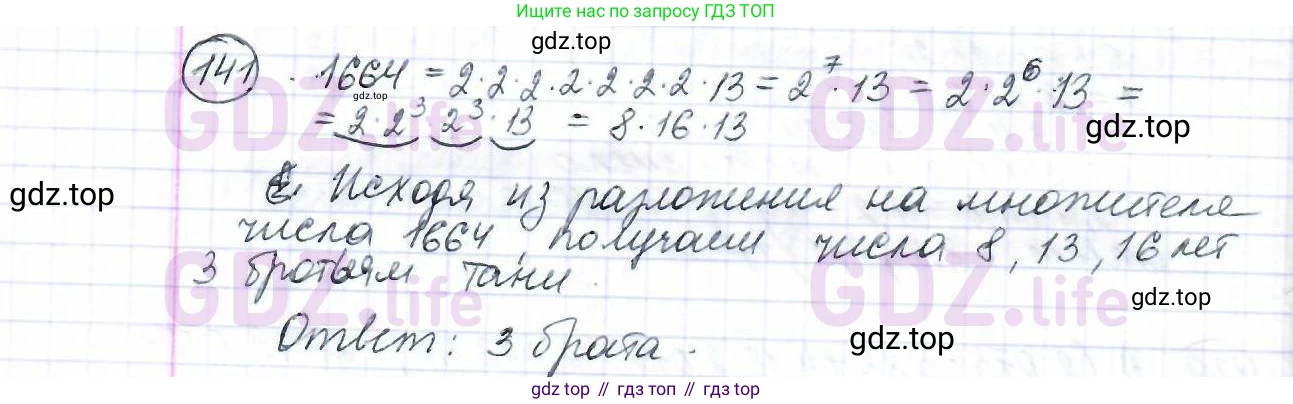 Ищите нас по запросу ГДЗ ТОП
gdz.top
141 1664 = 2·2·2·2·2·2·2·13 = 2⁷·13 = 2·2⁶·13 =
gdz.top
= 2·2³ 2³·13 = 8·16·13
gdz.top
GDZ.life GDZ.life
gdz.top
Исходя из разложения на множителе
числа 1664, получаем числа 8, 13, 16 лет
3 братьям Тани.
GDZ.life GDZ.life
gdz.top
Ответ: 3 брата.
gdz.top
gdz top // гдз топ // gdz top